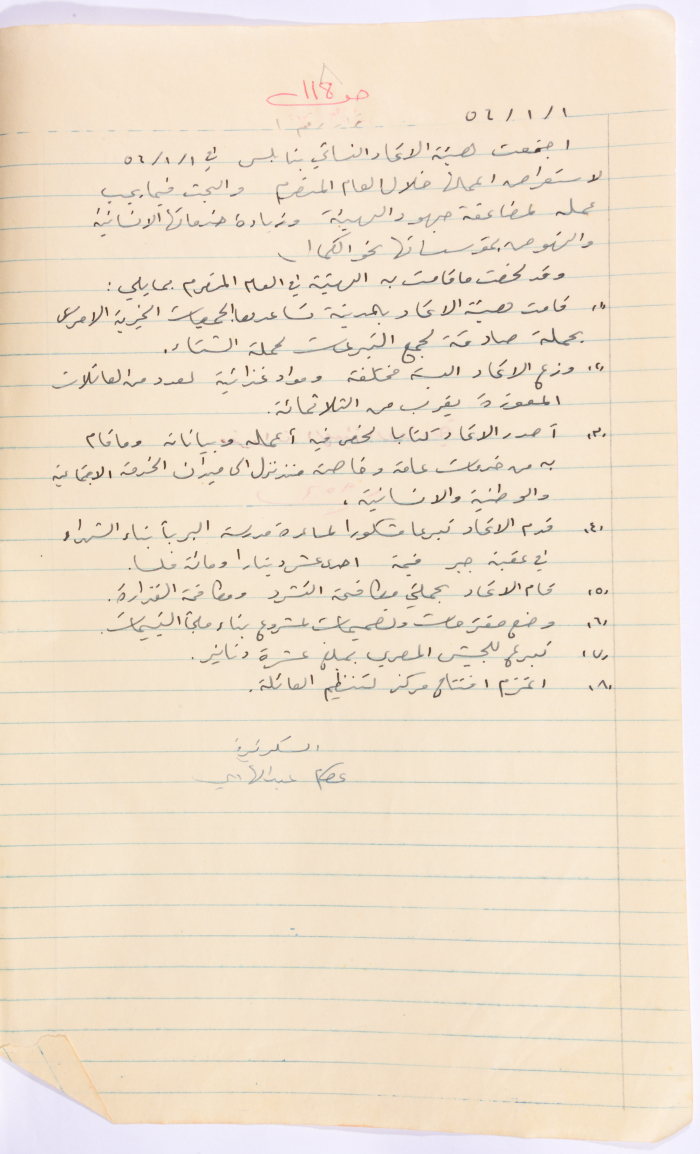 ص 118
٥٦/١/١
قرار رقم ١
اجتمعت هيئة الاتحاد النسائي بنابلس في ٥٦/١/١
لاستعراض اعمالها خلال العام المنصرم والبحث فيما يجب
عمله لمضاعفة جهود الهيئة وزيادة خدماتها الانسانية
والنهوض بمؤسساتها نحو الكمال
وقد لخصت ما قامت به الهيئة في العام المنصرم بما يلي :
١. قامت هيئة الاتحاد بالمدينة تساعدها الجمعيات الخيرية الاخرى
بحملة صادقة لجمع التبرعات لحملة الشتاء.
٢. وزع الاتحاد البسة مختلفة ومواد غذائية لعدد من العائلات
المعوزة يقرب من الثلاثمائة.
٣. أصدر الاتحاد كتابا لخص فيه أعماله وبياناته وما قام
به من خدمات عامة وخاصة منذ نزل الى ميدان الخدمة الاجتماعية
والوطنية والانسانية .
٤. قدم الاتحاد تبرعا مشكورا لمساعدة مدرسة البر بأبناء الشهداء
في عقبة جبر قيمة احدى عشر دينارا ومائة فلسا.
٥. قام الاتحاد بحملتي مكافحة التشرد ومكافحة القذارة.
٦. وضع مقترحات وتصميمات لمشروع بناء ملجأ اليتيمات.
٧. تبرع للجيش المصري بمبلغ عشرة دنانير.
٨. اعتزم افتتاح مركز لتنظيم العائلة.
السكرتيرة
عصام عبد الهادي